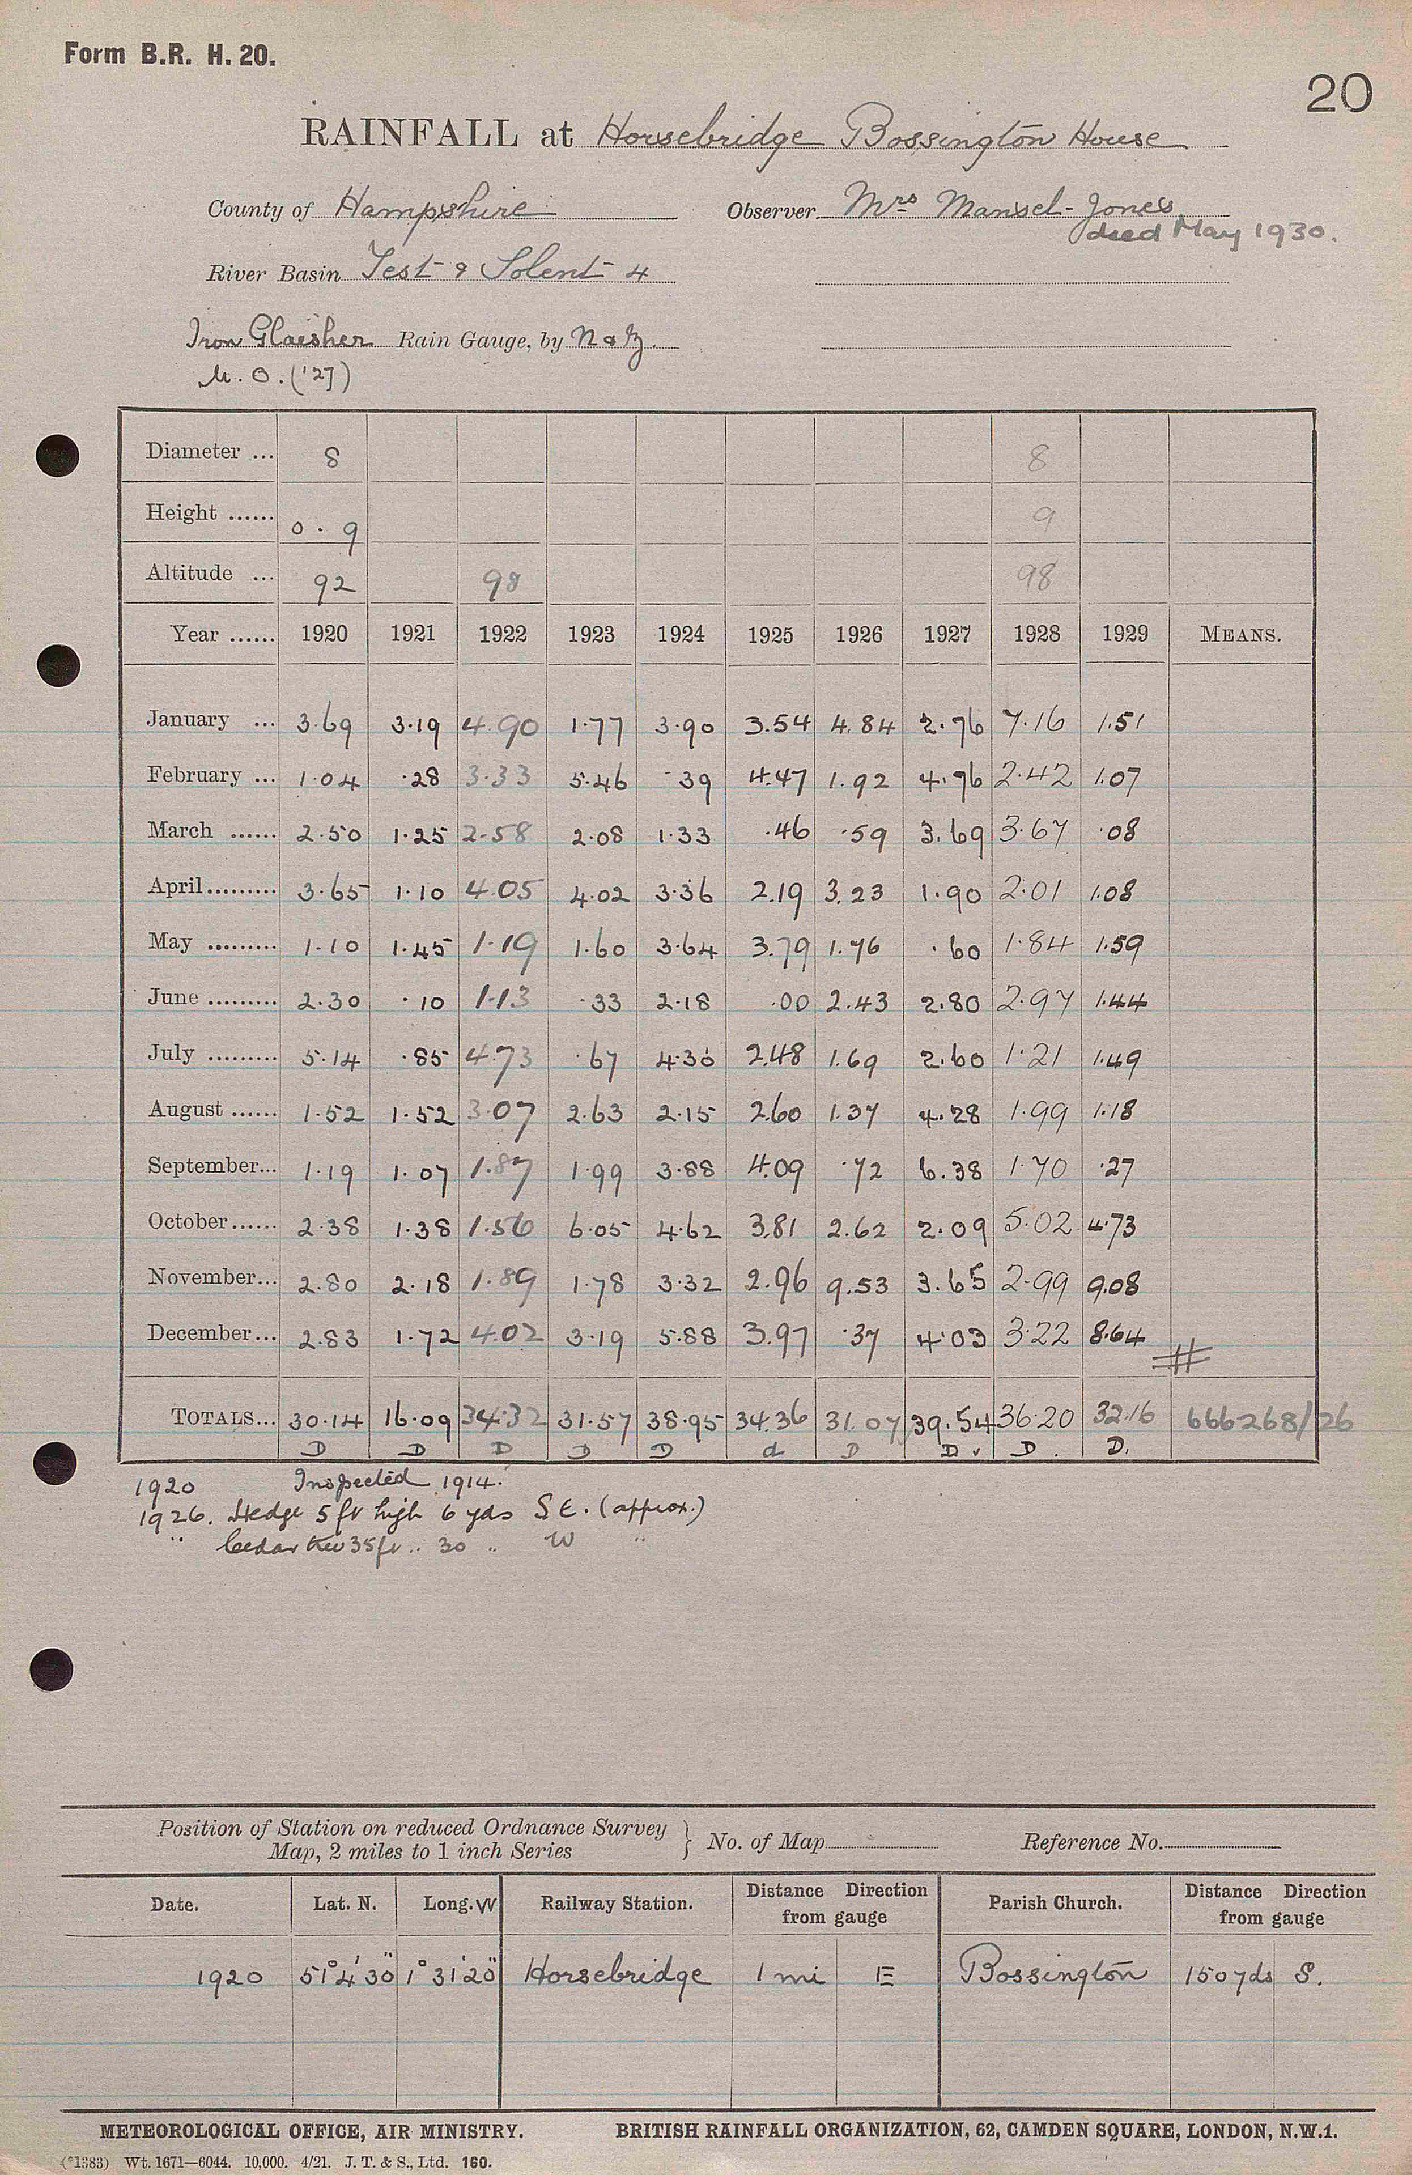 Form B.R. H. 20.
20
RAINFALL at Horsebridge Bossington House
County of Hampshire Observer Mrs Mansel-Jones
died May 1930.
River Basin Test & Solent 4
Iron Glaisher Rain Gauge, by N & Z.
M. O. ('27)
Diameter ... 8 8
Height ...... 0 . 9 9
Altitude ... 92 98 98
Year ...... 1920 1921 1922 1923 1924 1925 1926 1927 1928 1929 MEANS.
January ... 3.69 3.19 4.90 1.77 3.90 3.54 4.84 2.76 7.16 1.51
February ... 1.04 .28 3.33 5.46 .39 4.47 1.92 4.76 2.42 1.07
March ...... 2.50 1.25 2.58 2.08 1.33 .46 .59 3.69 3.67 .08
April......... 3.65 1.10 4.05 4.02 3.36 2.19 3.23 1.90 2.01 1.08
May ......... 1.10 1.45 1.19 1.60 3.64 3.79 1.76 .60 1.84 1.59
June ......... 2.30 .10 1.13 .33 2.18 .00 2.43 2.80 2.97 1.44
July ......... 5.14 .85 4.73 .67 4.30 2.48 1.69 2.60 1.21 1.49
August ...... 1.52 1.52 3.07 2.63 2.15 2.60 1.37 4.28 1.99 1.18
September... 1.19 1.07 1.87 1.99 3.88 4.09 .72 6.38 1.70 .27
October...... 2.38 1.38 1.56 6.05 4.62 3.81 2.62 2.09 5.02 4.73
November... 2.80 2.18 1.89 1.78 3.32 2.96 9.53 3.65 2.99 9.08
December... 2.83 1.72 4.02 3.19 5.88 3.97 .37 4.03 3.22 8.64
TOTALS... 30.14 16.09 34.32 31.57 38.95 34.36 31.07 39.54 36.20 32.16 666268/26
D D D D D d D D. D. D.
1920 Inspected 1914.
1926. Hedge 5 ft high 6 yds S E. (approx.)
" Cedar tree 35 ft .. 30 .. W "
Position of Station on reduced Ordnance Survey
Map, 2 miles to 1 inch Series } No. of Map Reference No.
Date. Lat. N. Long. W Railway Station. Distance Direction from gauge Parish Church. Distance Direction from gauge
1920 51° 4' 30" 1° 31' 20" Horsebridge 1 mi E Bossington 150 yds S.
METEOROLOGICAL OFFICE, AIR MINISTRY. BRITISH RAINFALL ORGANIZATION, 62, CAMDEN SQUARE, LONDON, N.W.1.
(*1383) Wt. 1671—6044. 10,000. 4/21. J. T. & S., Ltd. 160.